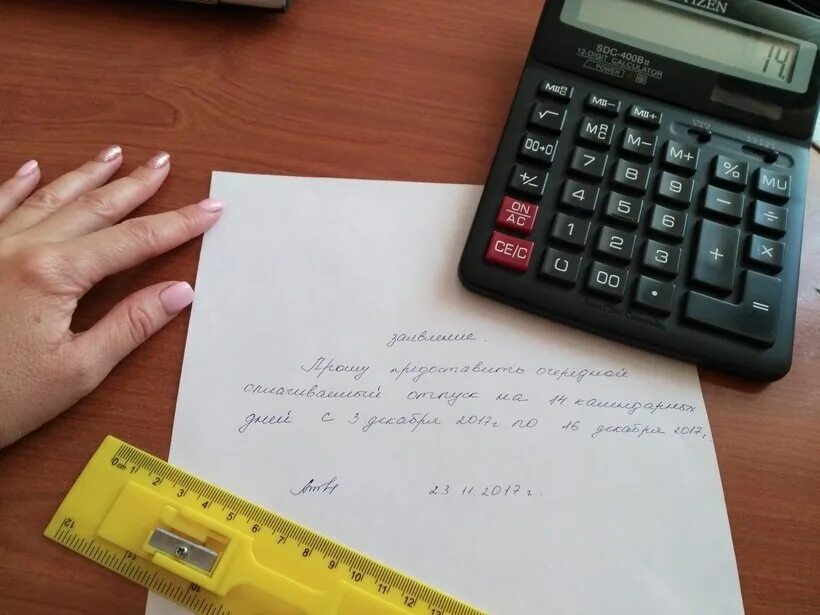 CITIZEN
14.
SDC-400B II
12-DIGIT CALCULATOR
POWER
MII R/C MII- MII+
√ M R/C M- M+
00→0 7 8 9 % MU
+/- 4 5 6 - ÷
ON/AC 1 2 3 + ×
CE/C 0 00 • =
заявление.
Прошу предоставить очередной
оплачиваемый отпуск на 14 календарных
дней с 3 декабря 2017г по 16 декабря 2017г.
23.11.2017г.
0cm 1 2 3 4 5 6 7 8 9 10 11 12 13
12 11 10